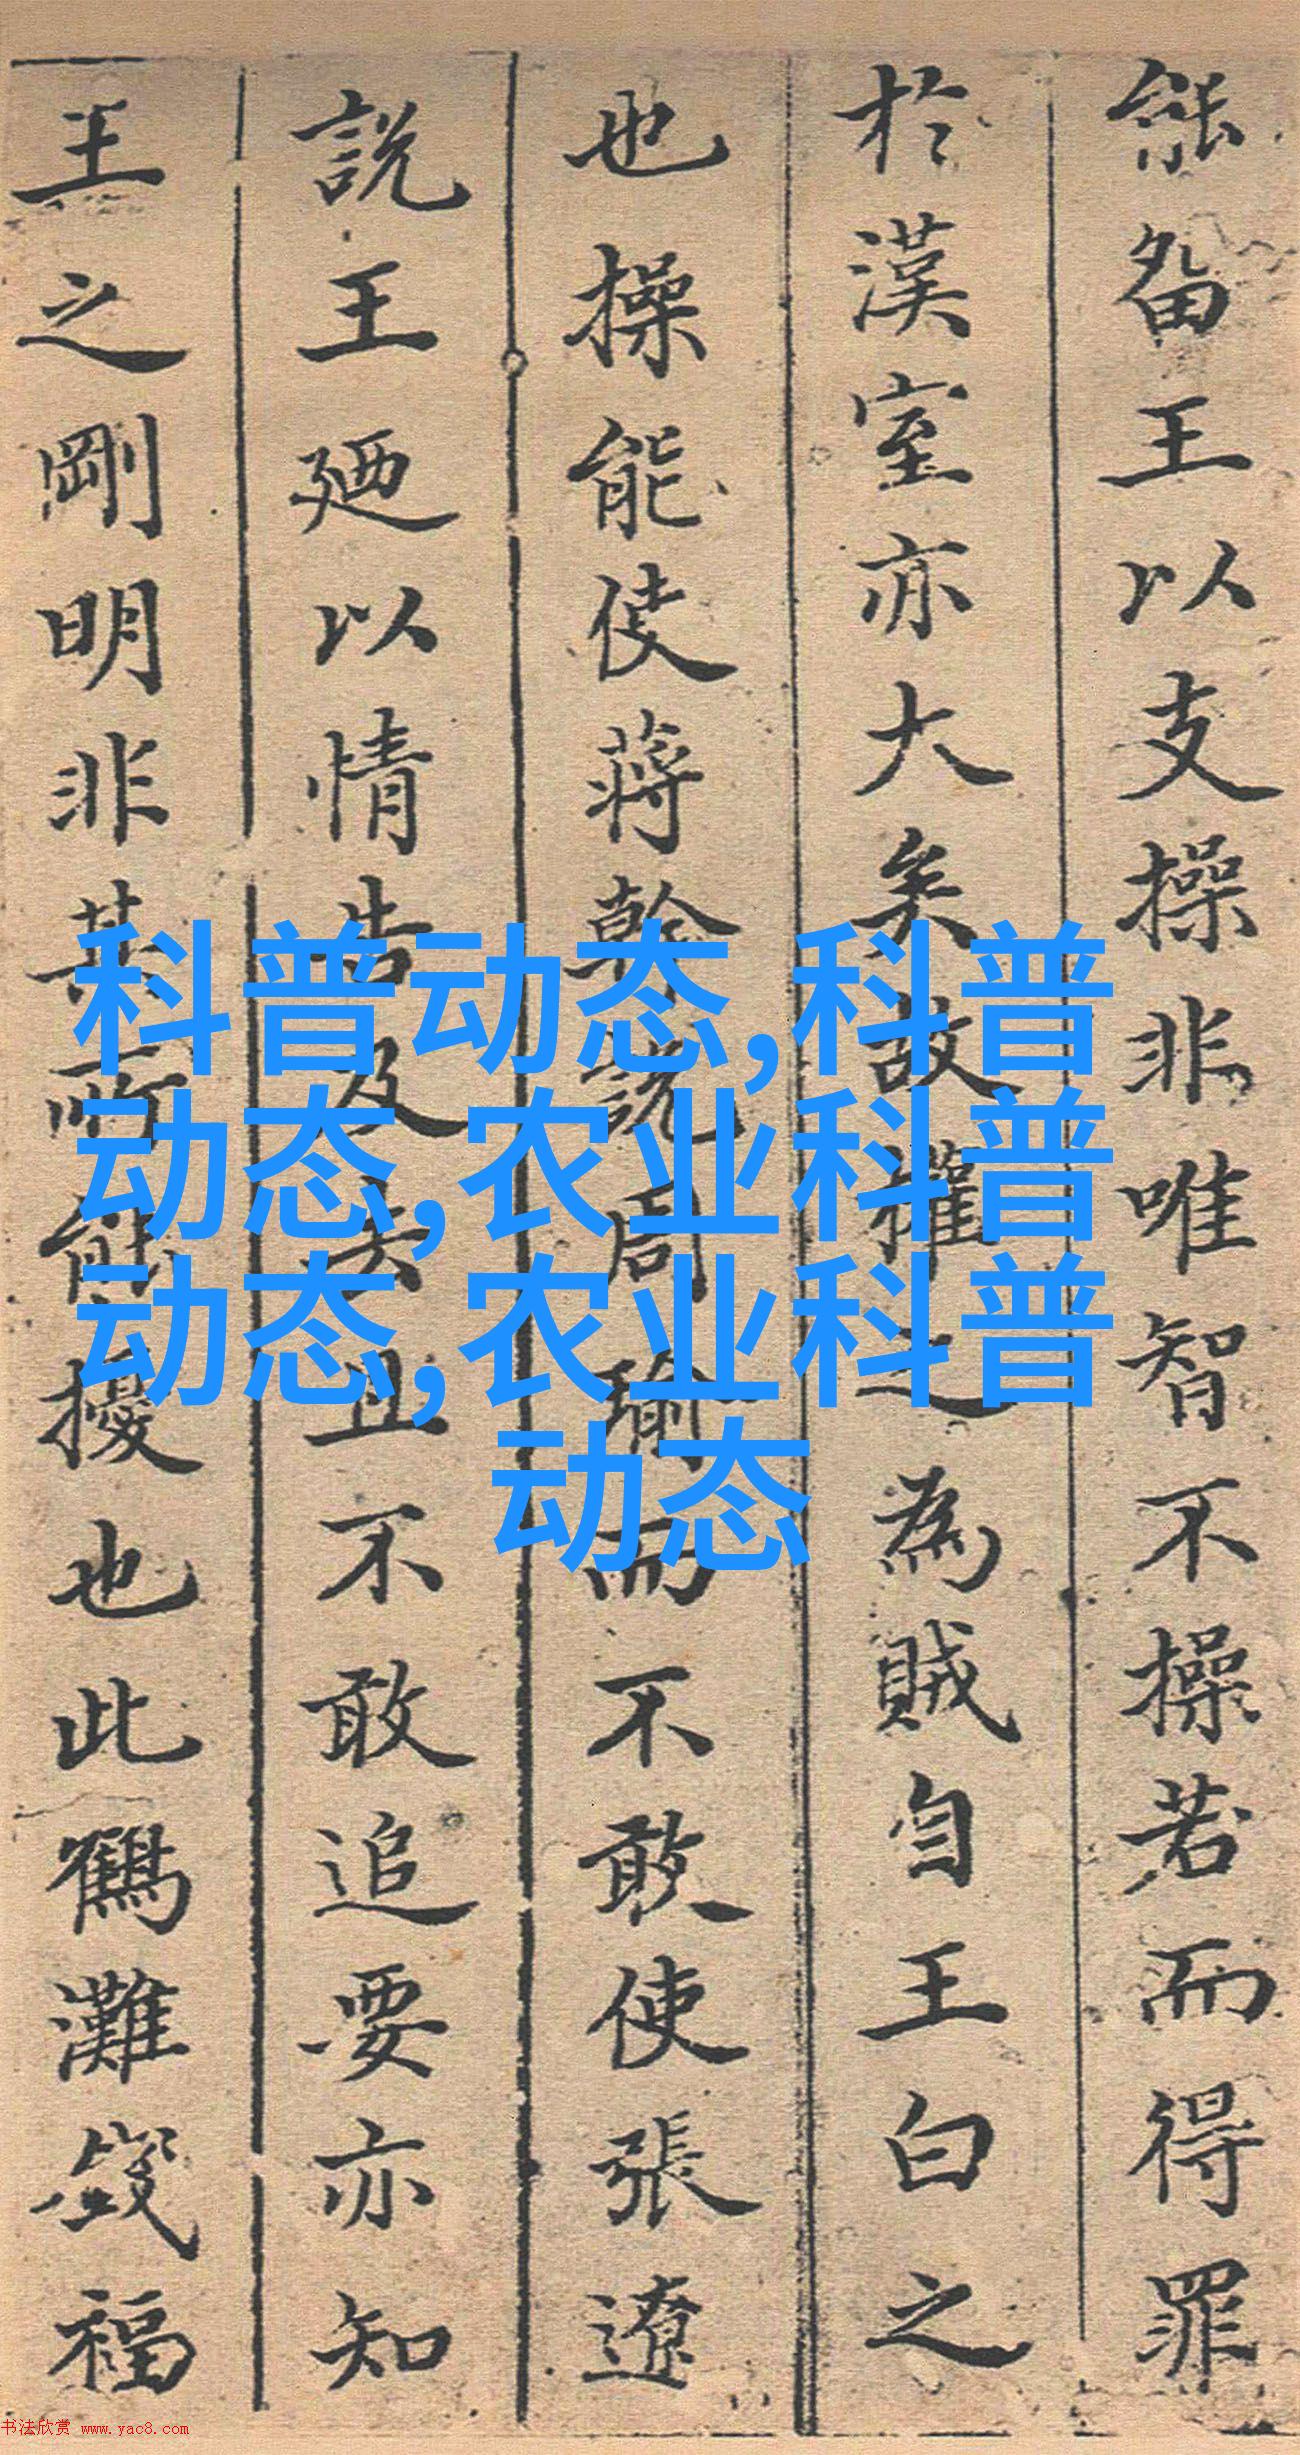 能留王以支操非唯智不操若而得罪
於漢室亦大矣故權之為賊自王白之
也操能使蔣幹說周瑜而不敢使張遼
說王廼以情告及去且不敢追要亦知
王之剛明非其所能擾也此鶴灘錢福
科普动态,科普
动态,农业科普
动态,农业科普
动态
书法欣赏 www.yac8.com